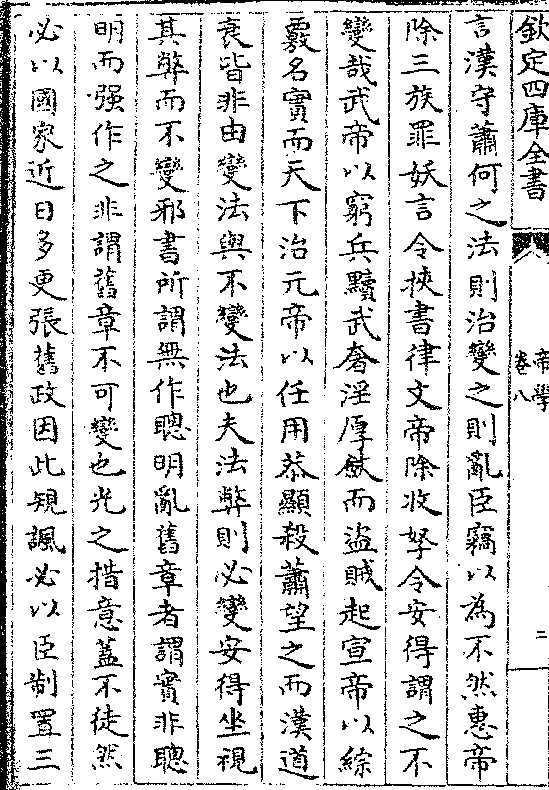 欽定四庫全書
帝學
卷八
二
言漢守蕭何之法則治變之則亂臣竊以為不然惠帝
除三族罪妖言令挾書律文帝除收孥令安得謂之不
變哉武帝以窮兵黷武奢淫厚斂而盜賊起宣帝以綜
覈名實而天下治元帝以任用恭顯殺蕭望之而漢道
衰皆非由變法與不變法也夫法弊則必變安得坐視
其弊而不變邪書所謂無作聰明亂舊章者謂實非聰
明而强作之非謂舊章不可變也光之措意蓋不徒然
必以國家近日多更張舊政因此規諷必以臣制置三